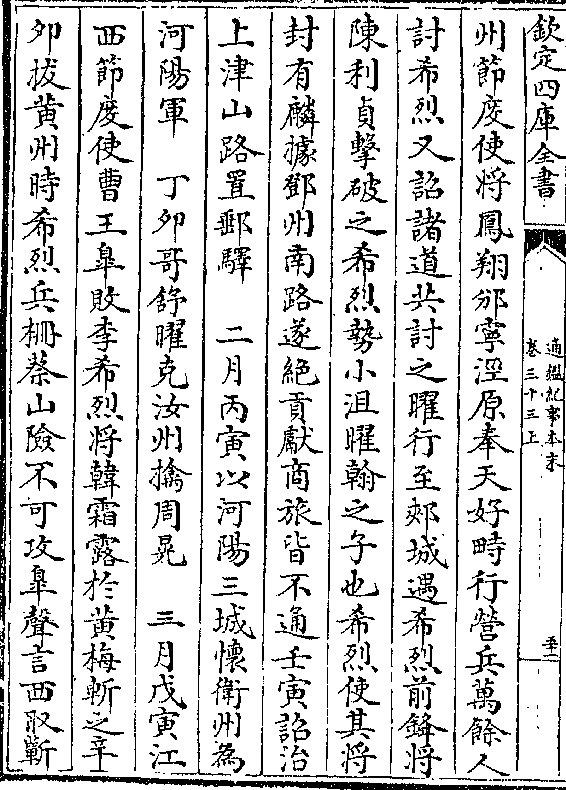 欽定四庫全書
通鑑紀事本末
卷三十三上
州節度使將鳳翔邠寧涇原奉天好畤行營兵萬餘人
討希烈又詔諸道共討之曜行至郟城遇希烈前鋒將
陳利貞擊破之希烈勢小沮曜翰之子也希烈使其將
封有麟據鄧州南路遂絕貢獻商旅皆不通壬寅詔治
上津山路置郵驛　二月丙寅以河陽三城懷衛州為
河陽軍　丁卯哥舒曜克汝州擒周晃　三月戊寅江
西節度使曹王臯敗李希烈將韓霜露於黃梅斬之辛
卯拔黃州時希烈兵柵蔡山險不可攻臯聲言西取蘄